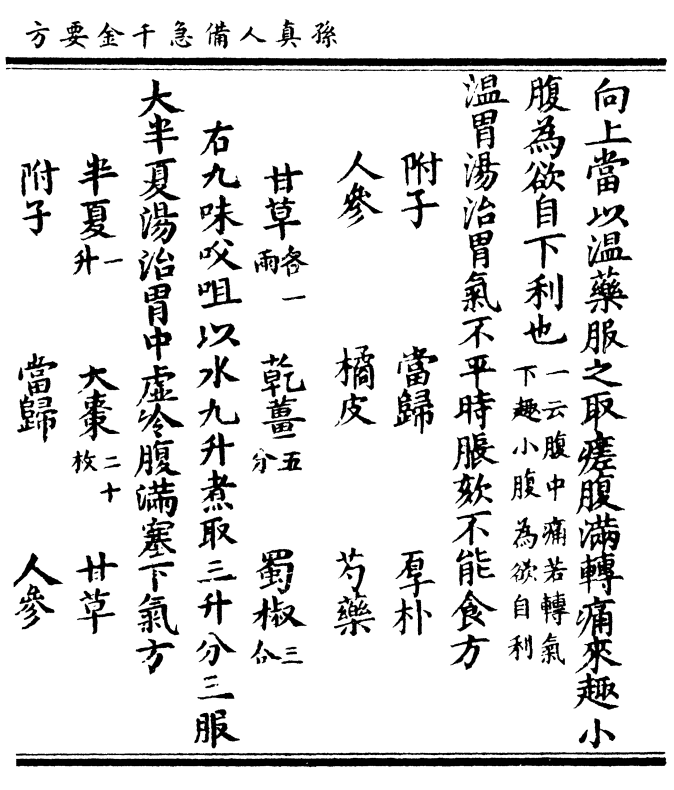 孫真人備急千金要方
向上當以温藥服之取瘥腹滿轉痛來趣小
腹為欲自下利也一云腹中痛若轉氣下趣小腹為欲自利
温胃湯治胃氣不平時脹欬不能食方
附子 當歸 厚朴
人參 橘皮 芍藥
甘草各一兩 乾薑五分 蜀椒三合
右九味㕮咀以水九升煮取三升分三服
大半夏湯治胃中虛冷腹滿塞下氣方
半夏一升 大棗二十枚 甘草
附子 當歸 人參